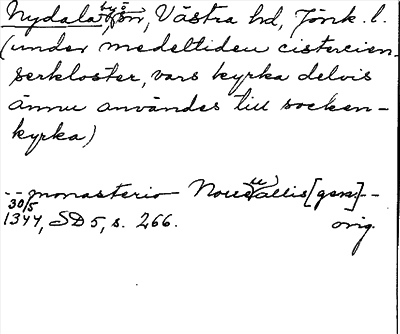 Nydala, Västra hd, Jönk. l.
(under medeltiden cistercien-
serkloster, vars kyrka delvis
ännu användes till socken-
kyrka)
-- monasterio Noue vallis [gen.] --
30/5
1344, SD 5, s. 266. orig.